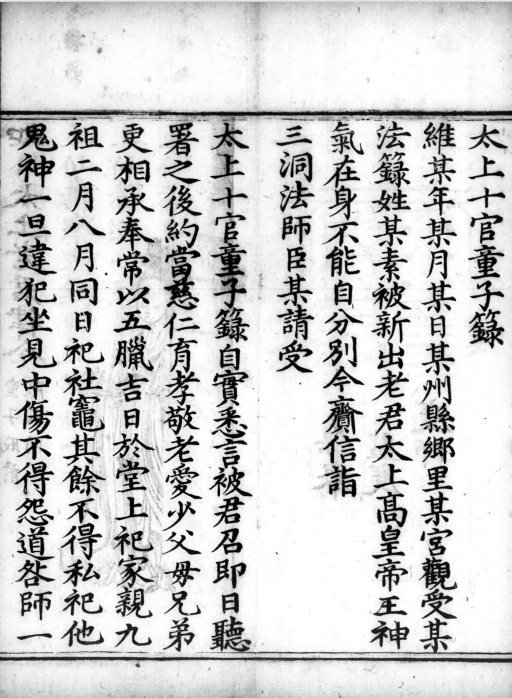 太上十官童子籙
維某年某月某日某州縣鄉里某宮觀受某
法籙姓某素被新出老君太上高皇帝王神
氣在身不能自分別今齎信詣
三洞法師臣某請受
太上十官童子籙自實悉言被君召即日聽
署之後約當慈仁育孝敬老愛少父母兄弟
更相承奉常以五臘吉日於堂上祀家親九
祖二月八月同日祀社竈其餘不得私祀他
鬼神一旦違犯坐見中傷不得怨道咎師一